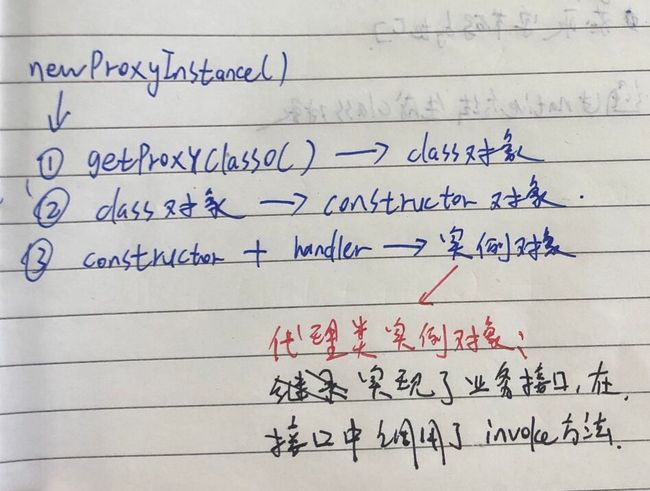 newProxyInstance()
↓
① getProxyClass0() → class对象
② class对象 → constructor对象.
③ constructor + handler → 实例对象
代理类实例对象:
实现了业务接口,在
接口中调用了invoke方法.